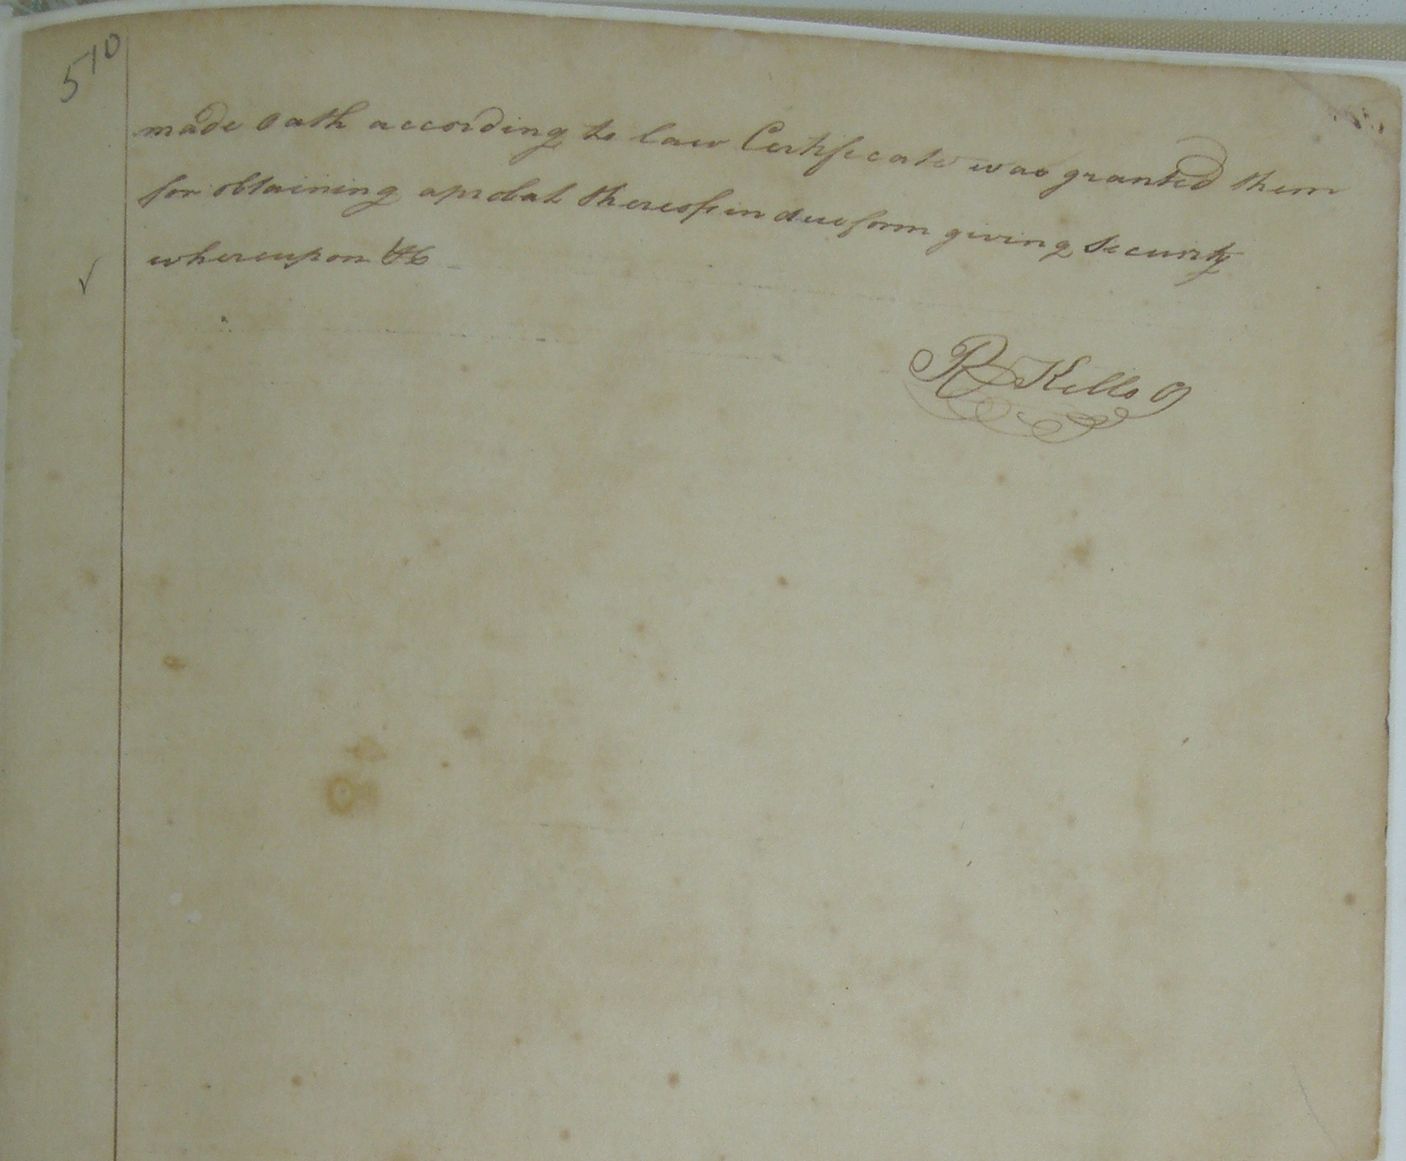 510
made Oath according to law Certificate was granted them
for obtaining a probat thereof in due form giving Security
whereupon &c
R Kello